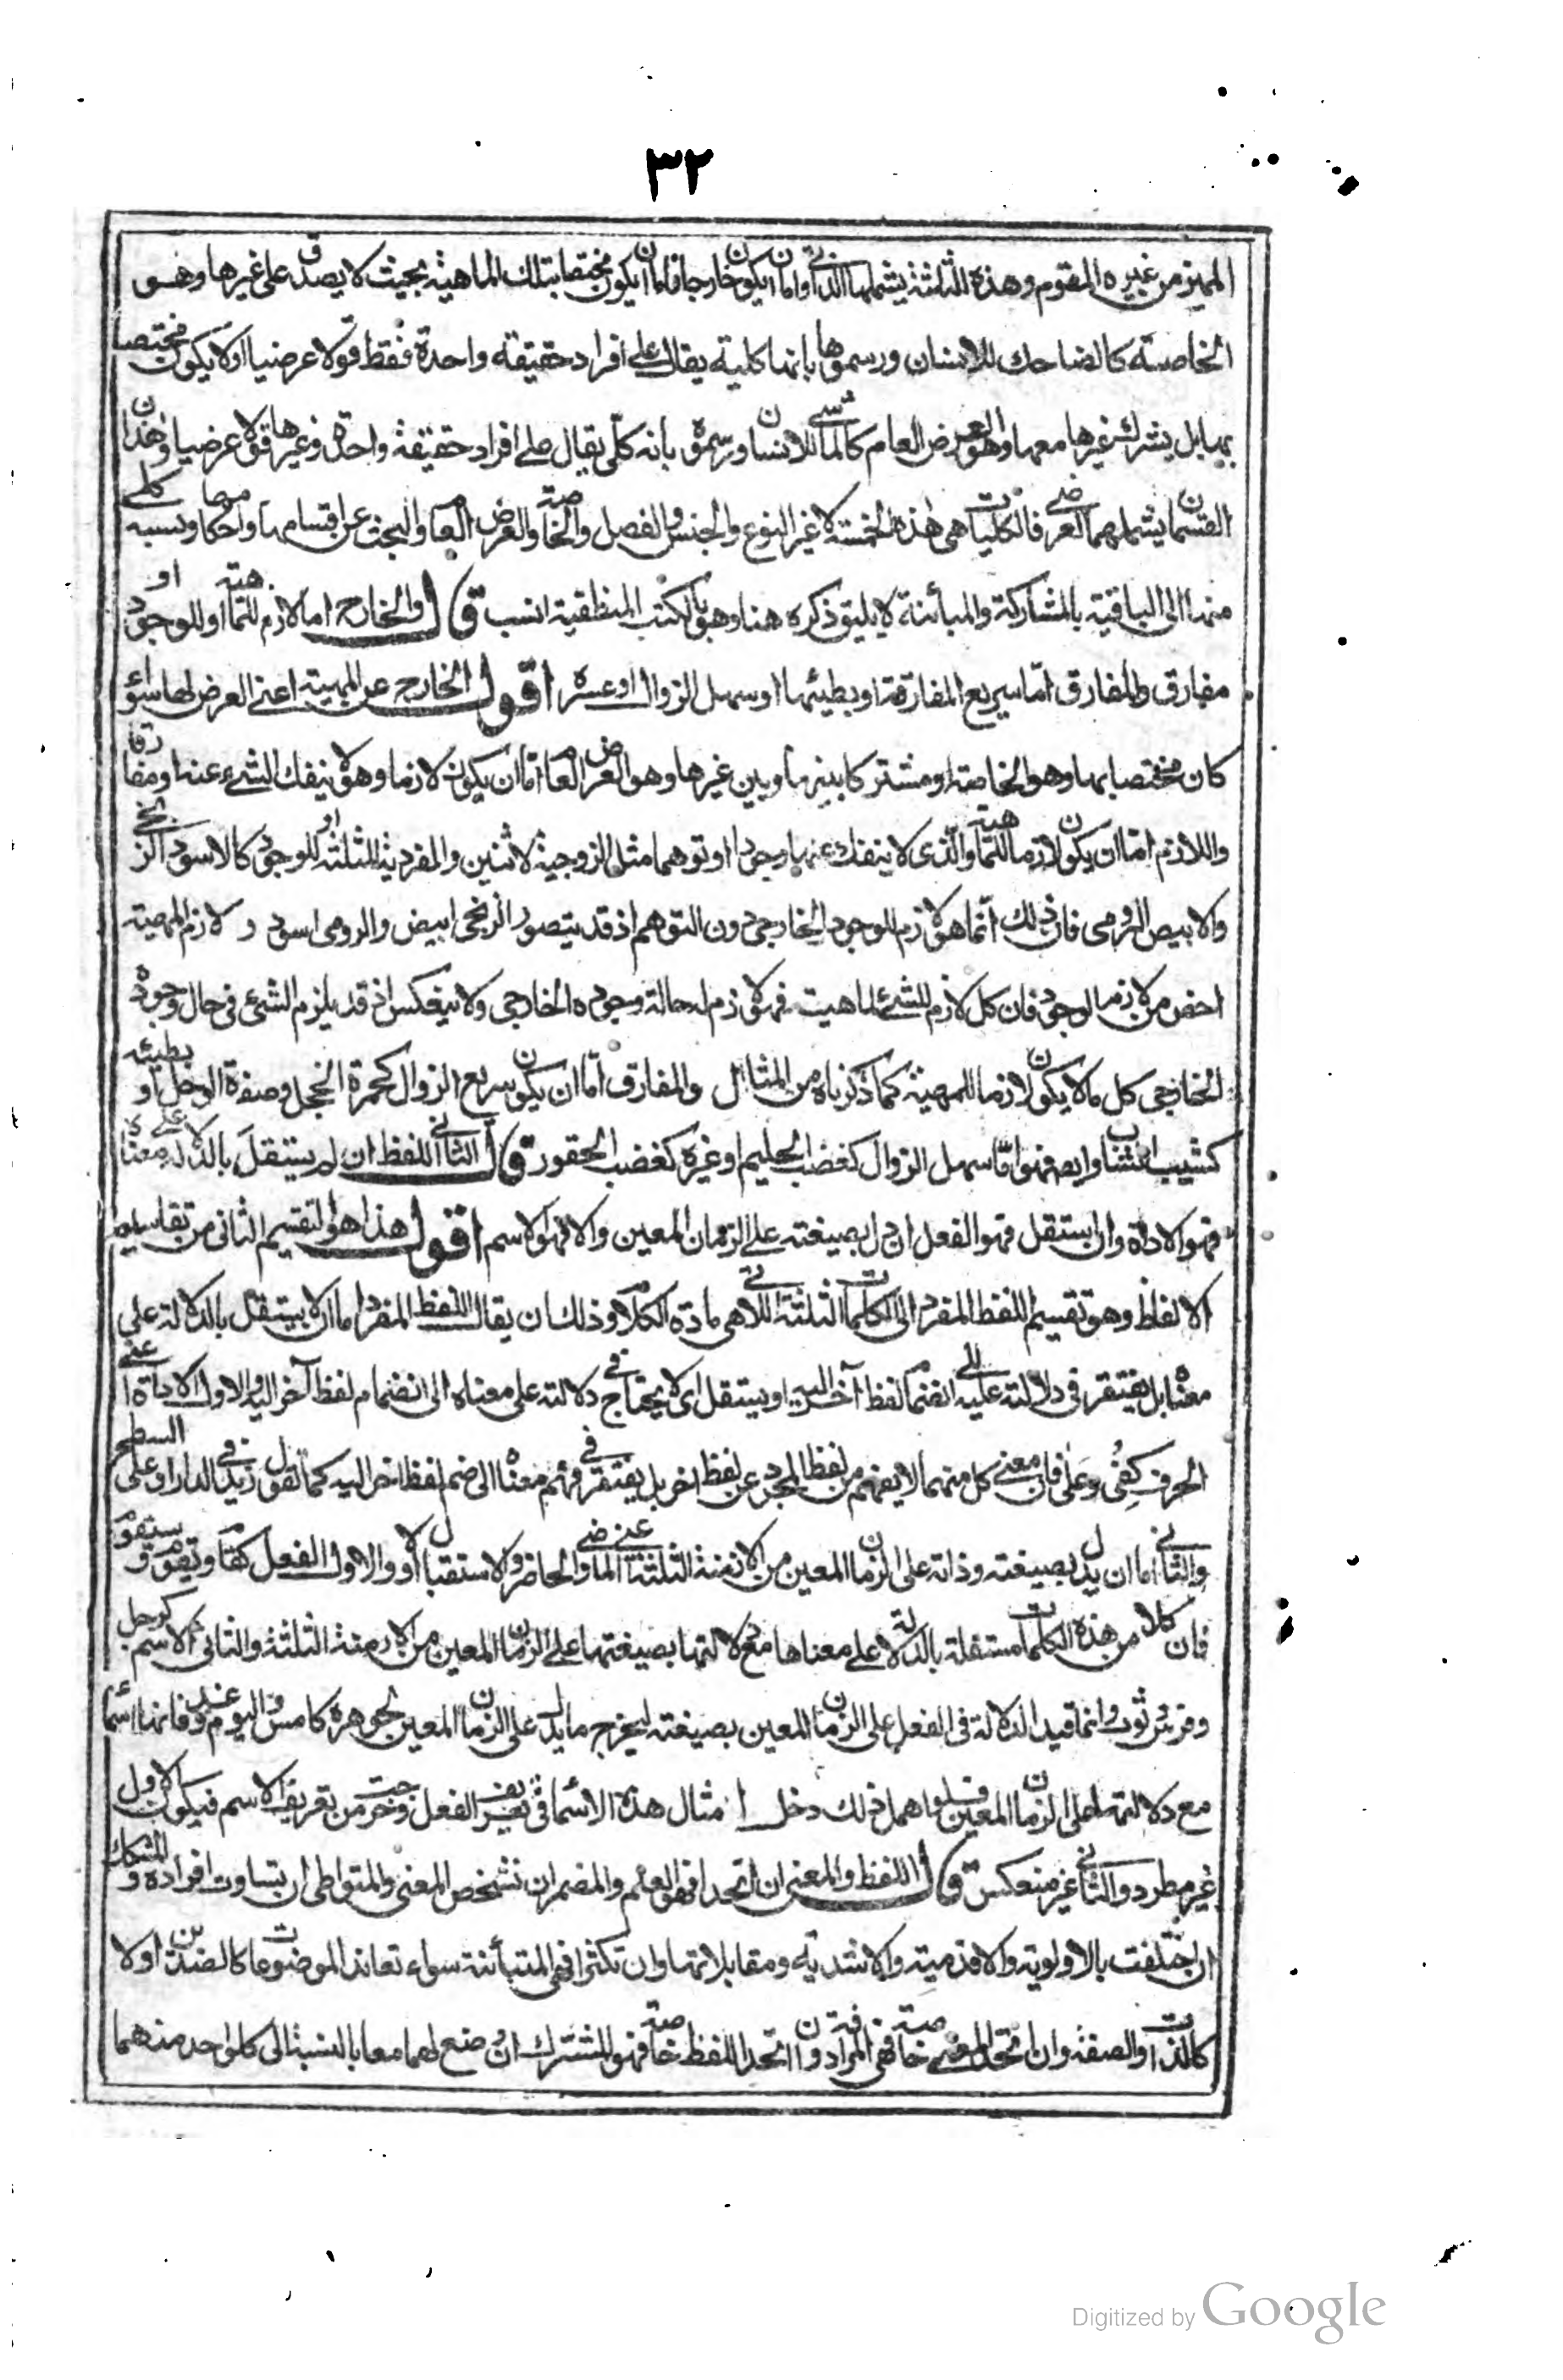 ٣٢
المميز من غيره المقوم وهذه الثلثة يشملها الذاتى واما ان يكون خارجا فاما ان يكون مختصا بتلك الماهية بحيث لا يصدق على غيرها وهو
الخاصة كالضاحك للانسان ورسموها بانها كلية يقال على افراد حقيقة واحدة فقط قولا عرضيا او لا يكون مختصا
بها بل يشرك غيرها معها وهو العرض العام كالماشى للانسان ورسموه بانه كلى يقال على افراد حقيقة واحدة وغيرها قولا عرضيا وهذان
القسمان يشملهما العرضى فالكليات هى هذه الخمسة لا غير النوع والجنس والفصل والخاصة والعرض العام والبحث عن اقسامها واحكامها ونسبه كلى
منها الى الباقية بالمشاركة والمبائنة لا يليق ذكره هنا وهو بالكتب المنطقية انسب قال والخارج اما لازم للماهية او للوجود او
مفارق والمفارق اما سريع المفارقة او بطيئها او سهل الزوال او عسره اقول الخارج عن المهية اعنى العرض لها سواء
كان مختصا بها وهو الخاصة او مشتركا بينها وبين غيرها وهو العرض العام اما ان يكون لازما وهو لا ينفك الشىء عنه او مفارقا
واللازم اما ان يكون لازما للماهية والذى لا ينفك عنها وجودا او توهما مثل الزوجية لاثنين والفردية للثلثة او للوجود كالاسود الزنجى
والابيض الرومى فان ذلك انما هو لازم للوجود الخارجى دون التوهم اذ قد يتصور الزنجى ابيض والرومى اسود ولازم المهية
اخص من لازم الوجود فان كل لازم للشئ لماهيته فهو لازم له حالة وجوده الخارجى ولا ينعكس اذ قد يلزم الشئ فى حال وجوده
الخارجى كل ما لا يكون لازما للمهية كما ذكرناه من المثال والمفارق اما ان يكون سريع الزوال كحمرة الخجل وصفرة الوجل او بطيئه
كشيب الشباب وايضا فهو اما سهل الزوال كغضب الحليم او غيره كغضب الحقود قال الثانى اللفظ ان لم يستقل بالدلالة على معناه
فهو الاداة وان استقل فهو الفعل ان دل بصيغته على الزمان المعين والا فهو الاسم اقول هذا هو التقسيم الثانى من تقاسيم
الالفاظ وهو تقسيم اللفظ المفرد الى الكلمات الثلثة اللاتى هى مادة الكلام وذلك ان يقال اللفظ المفرد اما ان لا يستقل بالدلالة على
معناه بل يفتقر فى دلالته عليه الى انضمام لفظ آخر اليه او يستقل اى لا يحتاج فى دلالته على معناه الى انضمام لفظ آخر اليه والاول الاداة اعنى
الحرف كفى وعلى فان معنى كل منهما لا يفهم من لفظ المجرد عن لفظ اخر بل يفتقر فى فهم معناه الى ضم لفظ اخر اليه كما تقول زيد فى الدار او على السطح
والثانى اما ان يدل بصيغته وذاته على الزمان المعين من الازمنة الثلثة اعنى الماضى والحاضر والاستقبال او لا والاول الفعل كقام ويقوم وسيقوم
فان كلا من هذه الكلمات مستقلة بالدلالة على معناها مع دلالتها بصيغتها على الزمان المعين من الازمنة الثلثة والثانى الاسم كرجل
وفرس وثوب وانما قيد الدلالة فى الفعل على الزمان المعين بصيغته ليخرج ما يدل على الزمان المعين بجوهره كامس واليوم وغد فانها اسماء
مع دلالتها على الزمان المعين فلو اهمل ذلك دخل امثال هذه الاسماء فى تعريف الفعل وخرجت من تعريف الاسم فيكون الاول
غير مطرد والثانى غير منعكس قال اللفظ والمعنى ان اتحدا فهو العلم والمضمر ان تشخص المعنى والمتواطى ان تساوت افراده والمشكك
ان اختلفت بالاولوية والاقدمية والاشدية ومقابلاتها وان تكثرا فهى المتبائنة سواء تعاند الموضوعات كالضدين او لا
كالذات والصفة وان اتحد المعنى خاصة فهى المرادفة وان اتحد اللفظ خاصة فهو المشترك ان وضع لهما معا بالنسبة الى كل واحد منهما
Digitized by Google